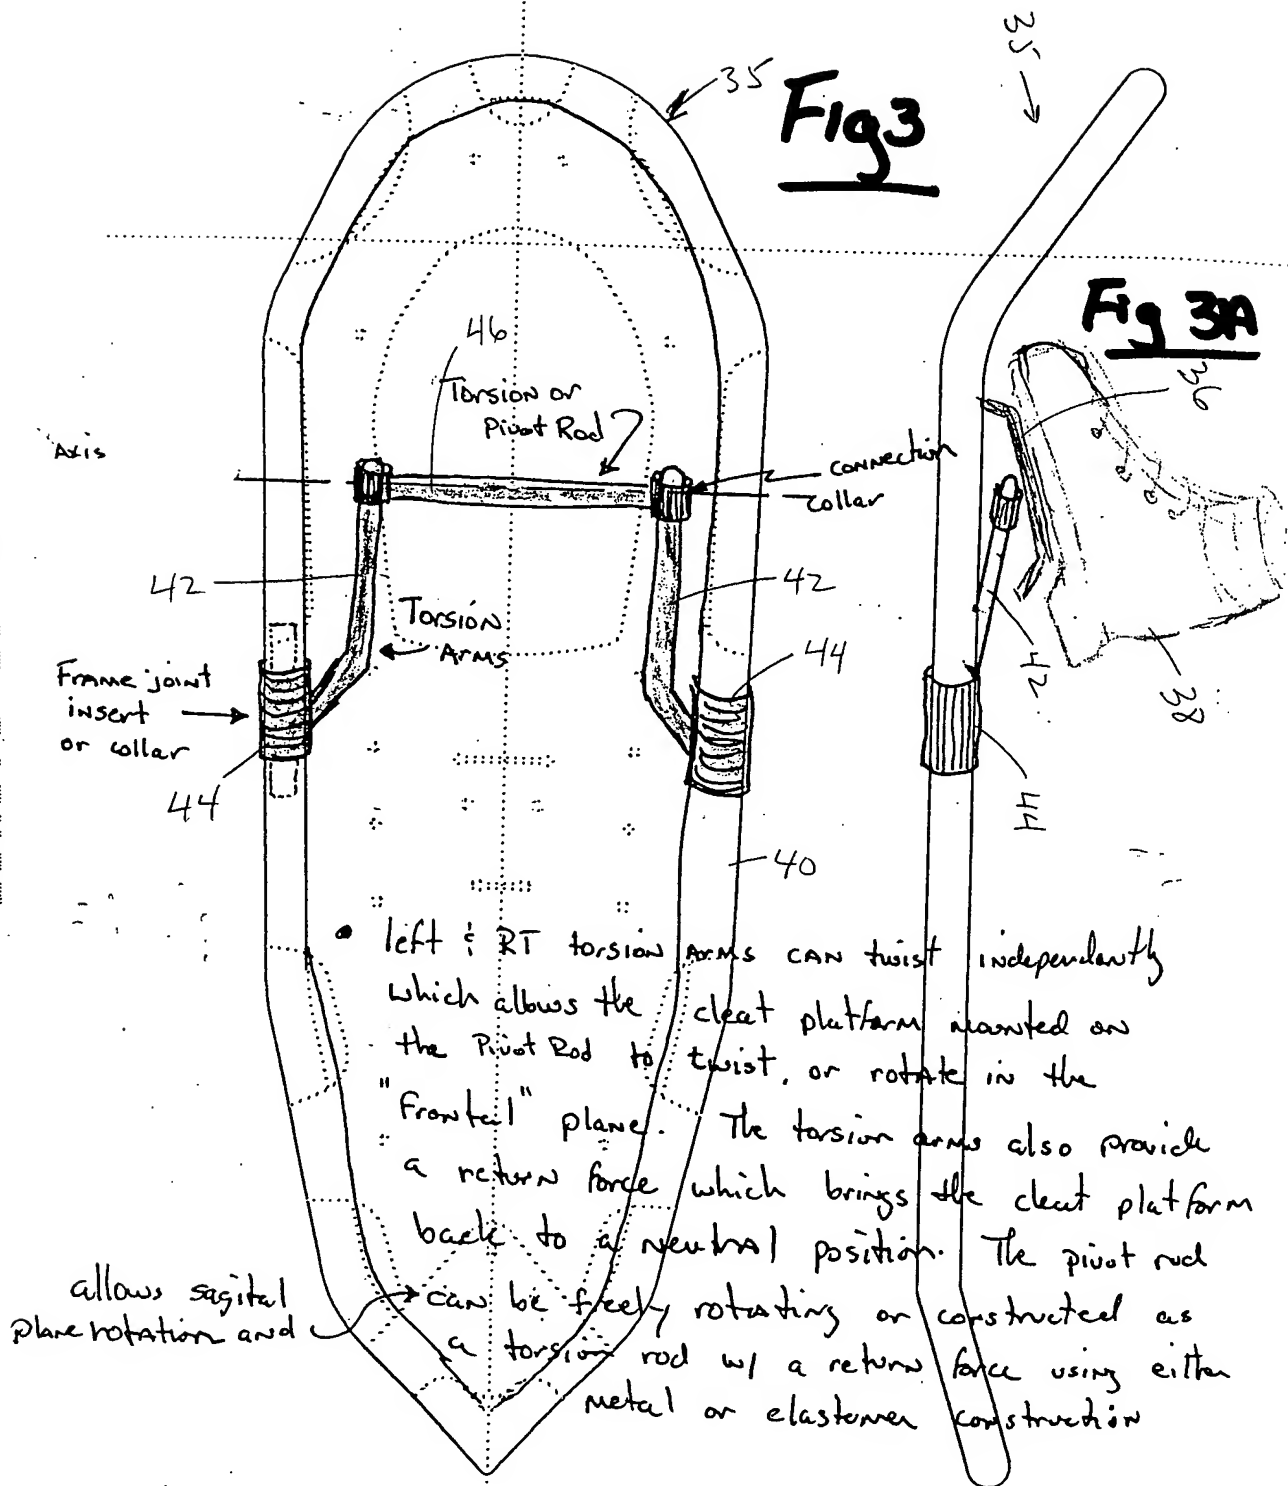 35
35
Fig 3
Fig 3A
36
46
Torsion or
Pivot Rod
Axis
connection
collar
42
42
42
Torsion
Arms
44
Frame joint
insert
or collar
44
44
38
40
• left & RT torsion Arms CAN twist independantly
which allows the cleat platform mounted on
the Pivot Rod to twist, or rotate in the
"Frontal" plane. The torsion arms also provide
a return force which brings the cleat platform
back to a neutral position. The pivot rod
allows sagital
plane rotation and
can be freely rotating or constructed as
a torsion rod w/ a return force using either
metal or elastomer construction